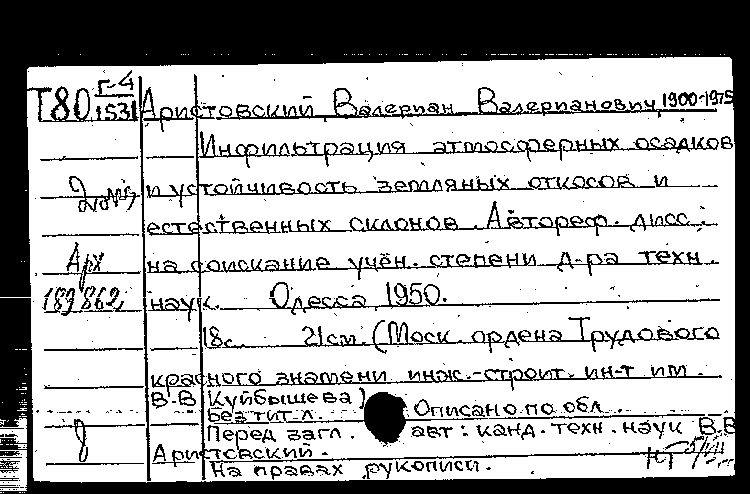 Т80 Г-4/1531 Аристовский, Валериан Валерианович, 1900-1975
Инфильтрация атмосферных осадков
и устойчивость земляных откосов и
естественных склонов. Автореф. дисс.
Арх на соискание учён. степени д-ра техн.
189862 наук. Одесса 1950.
18с. 21см. (Моск. ордена Трудового
красного знамени инж.-строит. ин-т им.
В.В. Куйбышева)
Без тит. л. Описано по обл.
8 Перед загл. авт: канд. техн. наук В.В.
Аристовский.
На правах рукописи.